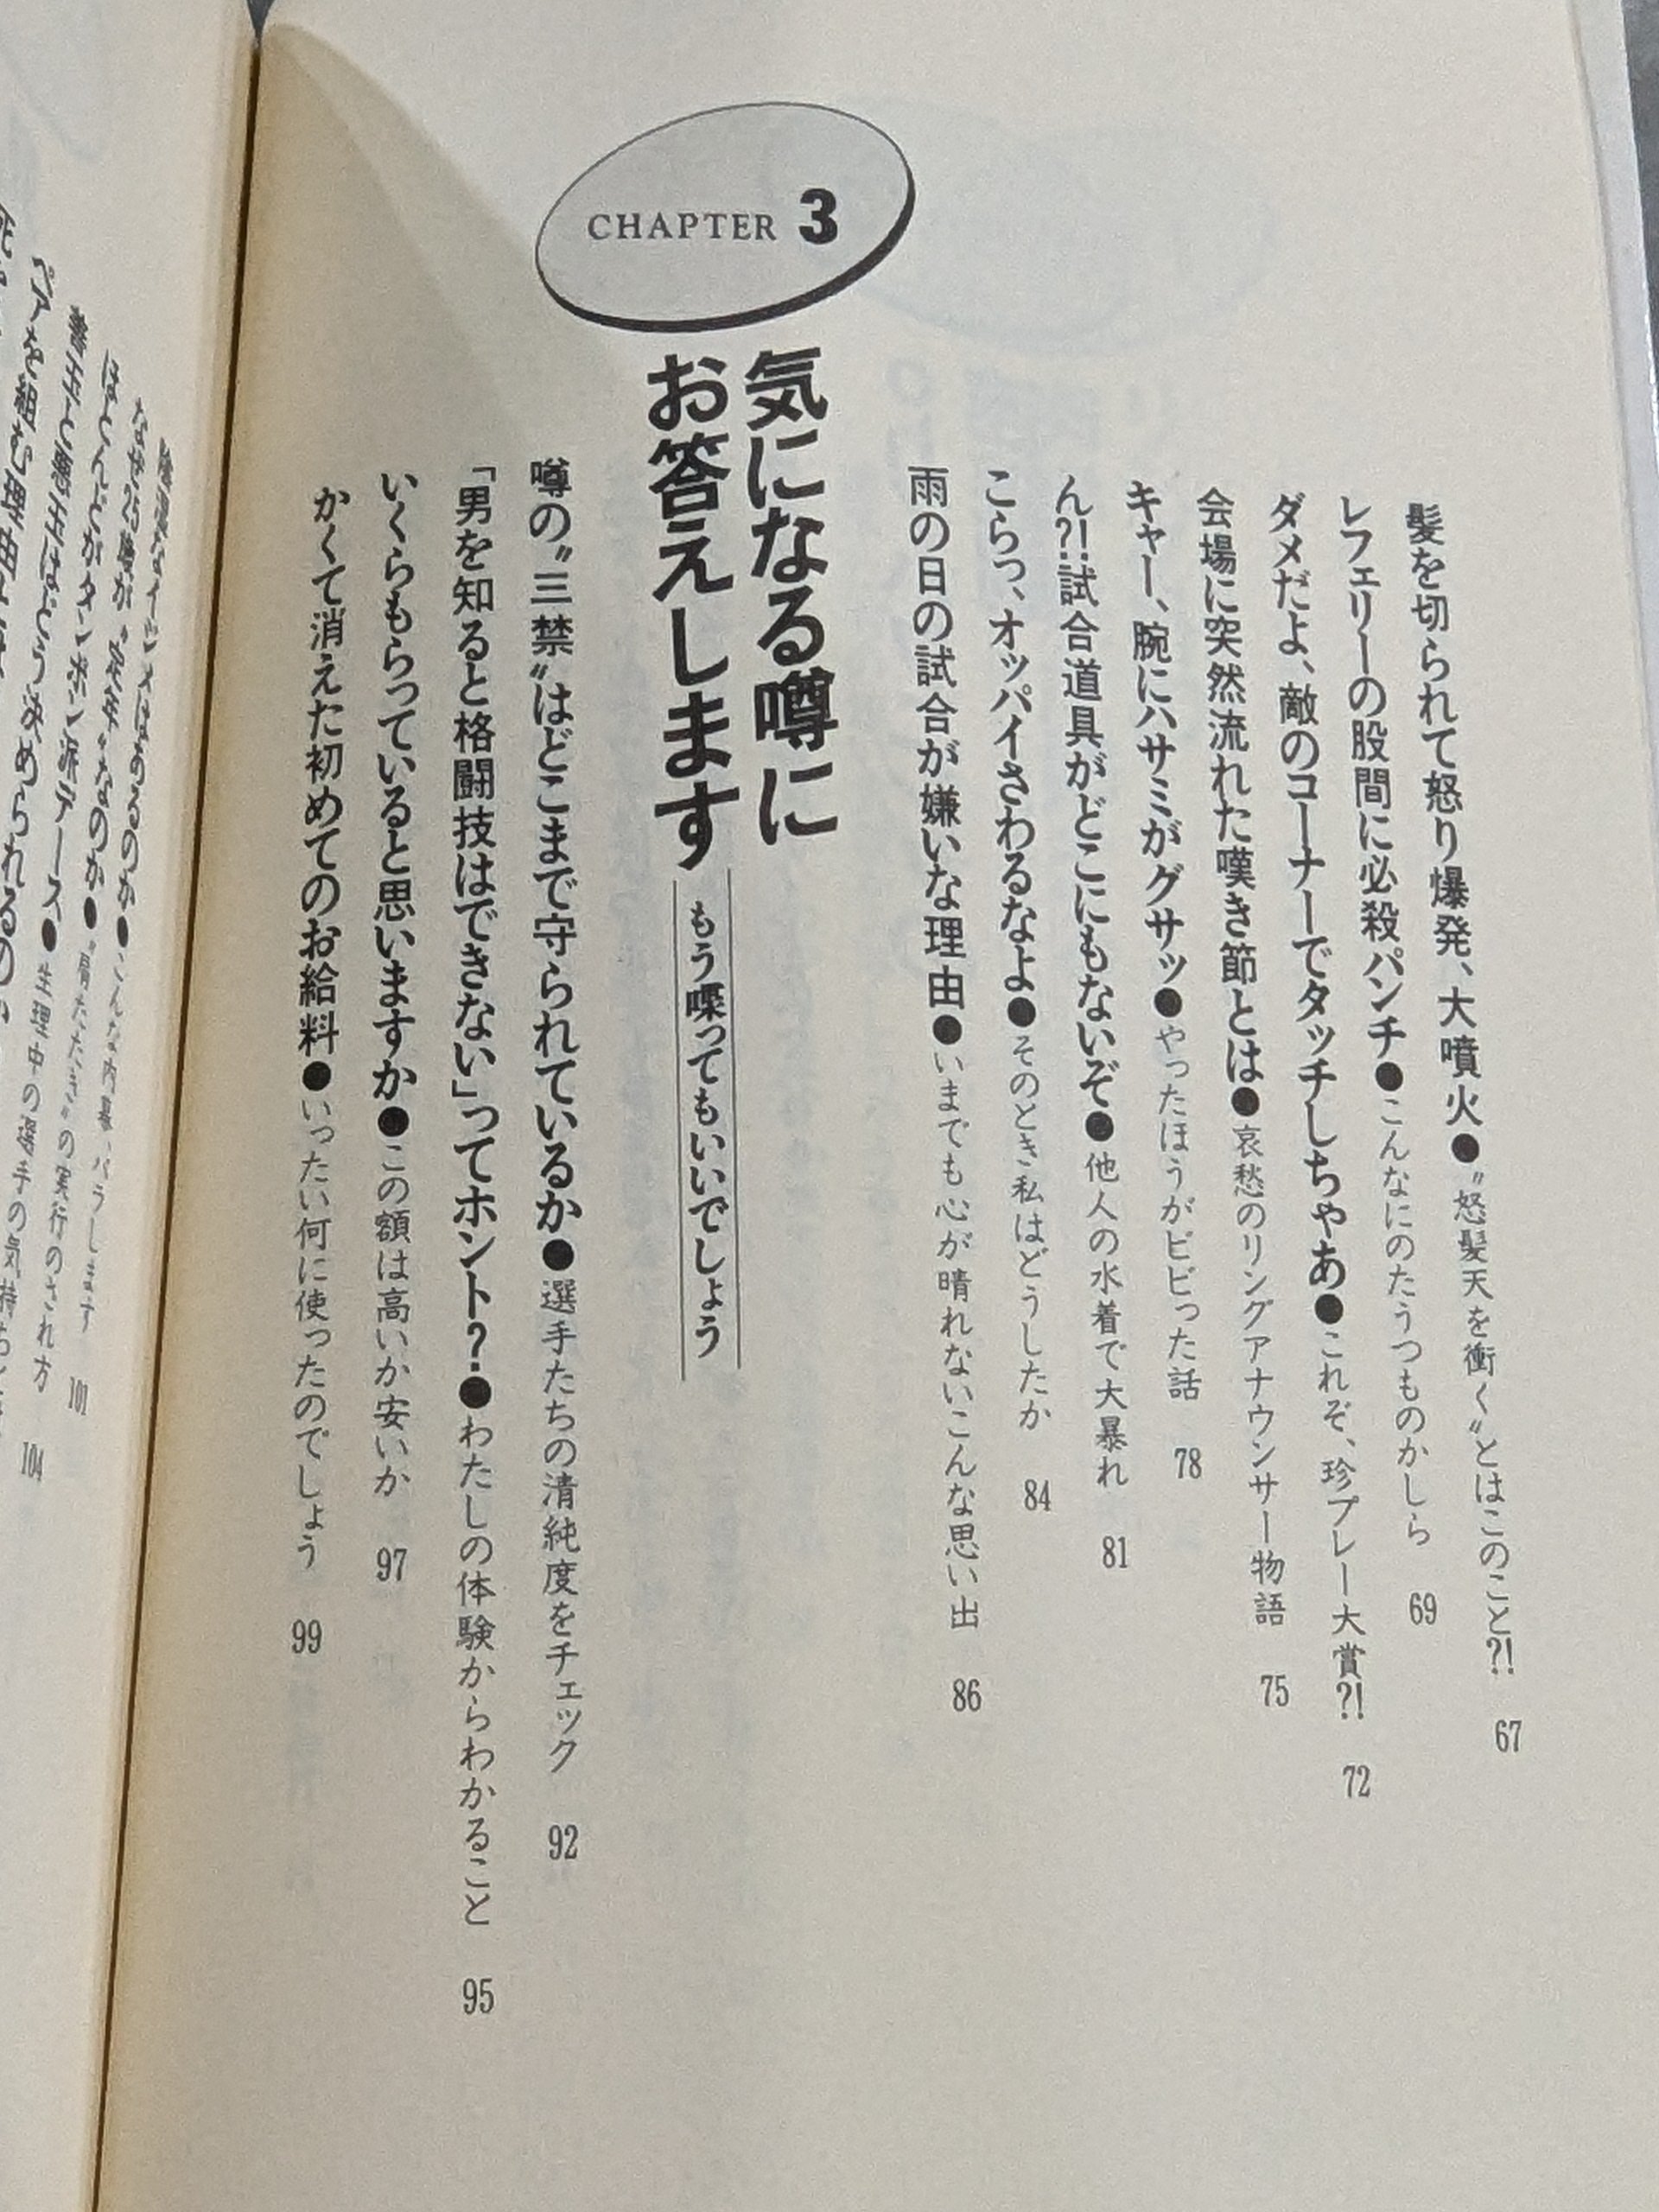 髪を切られて怒り爆発、大噴火●〝怒髪天を衝く〟とはこのこと?! 67
レフェリーの股間に必殺パンチ●こんなにのたうつものかしら 69
ダメだよ、敵のコーナーでタッチしちゃあ●これぞ、珍プレー大賞?! 72
会場に突然流れた嘆き節とは●哀愁のリングアナウンサー物語 75
キャー、腕にハサミがグサッ●やったほうがビビった話 78
ん?!試合道具がどこにもないぞ●他人の水着で大暴れ 81
こらっ、オッパイさわるなよ●そのとき私はどうしたか 84
雨の日の試合が嫌いな理由●いまでも心が晴れないこんな思い出 86
CHAPTER 3
気になる噂に
お答えします
もう喋ってもいいでしょう
噂の〝三禁〟はどこまで守られているか●選手たちの清純度をチェック 92
「男を知ると格闘技はできない」ってホント?●わたしの体験からわかること 95
いくらもらっていると思いますか●この額は高いか安いか 97
かくて消えた初めてのお給料●いったい何に使ったのでしょう 99
陰湿なイジメはあるのか●こんな内幕、バラします 101
なぜ25歳が〝定年〟なのか●〝肩たたき〟の実行のされ方 104
ほとんどがタンポン派デース●生理中の選手の気持ち
善玉と悪玉はどう決められるのか
ペアを組む理由